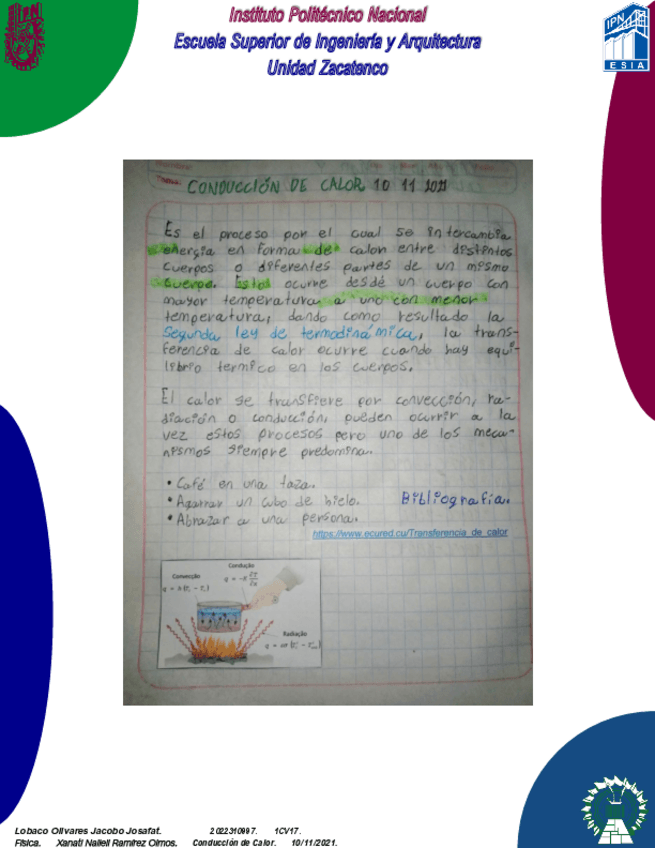 Instituto Politécnico Nacional
Escuela Superior de Ingeniería y Arquitectura
Unidad Zacatenco
IPN
ESIA
Tema:
CONDUCCIÓN DE CALOR 10 11 2021
Es el proceso por el cual se intercambia
energía en forma de calor entre distintos
cuerpos o diferentes partes de un mismo
cuerpo. Esto ocurre desde un cuerpo con
mayor temperatura a uno con menor
temperatura, dando como resultado la
Segunda ley de termodinámica, la trans-
ferencia de calor ocurre cuando hay equi-
librio termico en los cuerpos.
El calor se transfiere por convección, ra-
diación o conducción, pueden ocurrir a la
vez estos procesos pero uno de los meca-
nismos siempre predomina.
• Café en una taza.
• Agarrar un cubo de hielo.
Bibliografía.
• Abrazar a una persona.
https://www.ecured.cu/Transferencia_de_calor
Condução
Convecção
Radiação
Lobaco Olivares Jacobo Josafat. 2022310997. 1CV17.
Física. Xanati Nallell Ramírez Olmos. Conducción de Calor. 10/11/2021.